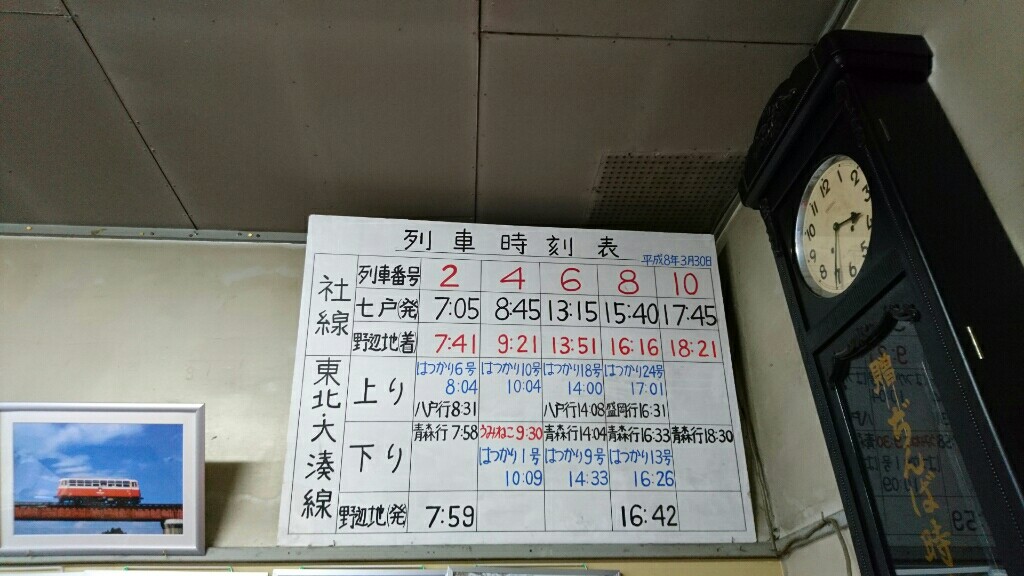 列車時刻表
平成8年3月30日
社線
列車番号 2 4 6 8 10
七戸(発) 7:05 8:45 13:15 15:40 17:45
野辺地(着) 7:41 9:21 13:51 16:16 18:21
東北・大湊線
上り
はつかり6号 はつかり10号 はつかり18号 はつかり24号
8:04 10:04 14:00 17:01
八戸行8:31 八戸行14:08 盛岡行16:31
下り
青森行7:58 うみねこ9:30 青森行14:04 青森行16:33 青森行18:30
はつかり1号 はつかり9号 はつかり13号
10:09 14:33 16:26
野辺地(発) 7:59 16:42
12 1 2 3 4 6 7 8 9 10 11
贈 ぢんば時